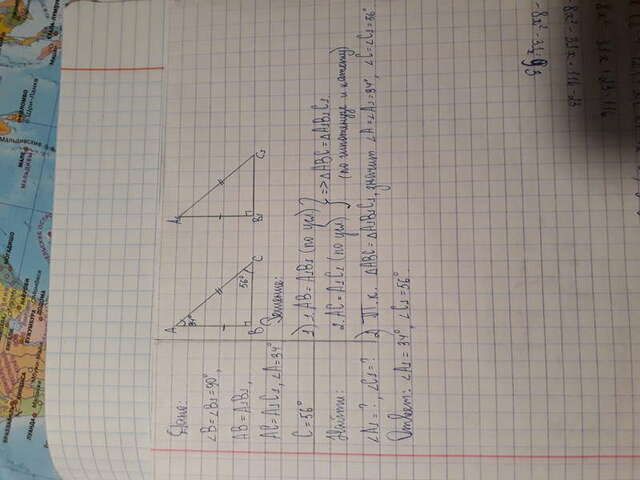 Дано:
∠B=∠B1=90°,
AB=A1B1,
AC=A1C1, ∠A=34°
C=56°
Найти:
∠A1=?, ∠C1=?
A
34°
B
C
56°
A1
B1
C1
Решение:
1) 1. AB=A1B1 (по усл)
2. AC=A1C1 (по усл)
=> ΔABC=ΔA1B1C1
(по гипотенузе и катету)
2) Т.к. ΔABC=ΔA1B1C1, значит ∠A=∠A1=34°, ∠C=∠C1=56°
Ответ: ∠A1=34°, ∠C1=56°
Мальдивские
МОГАДИШО